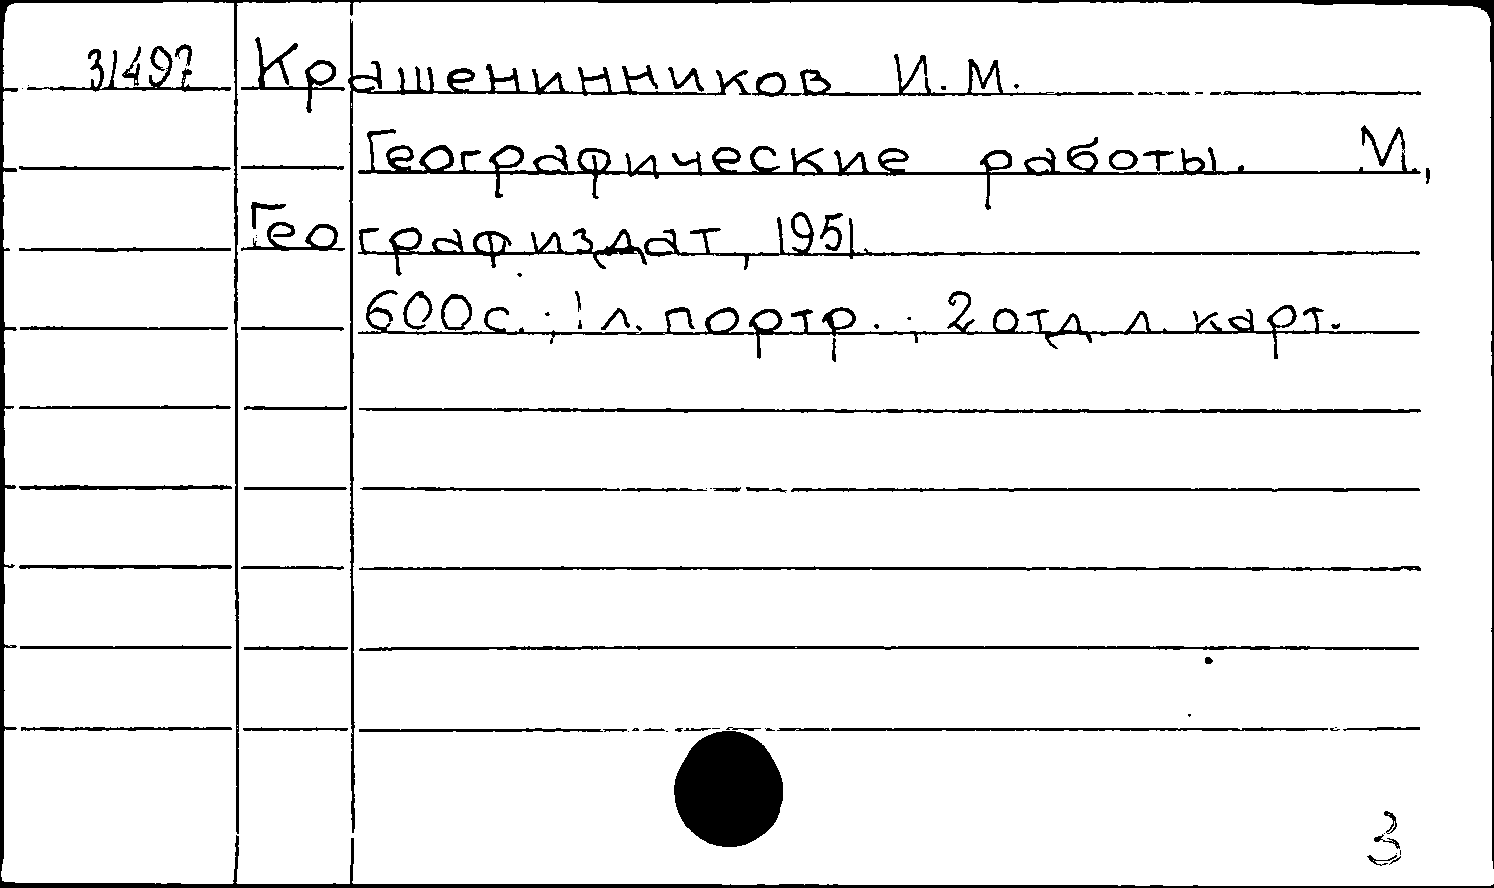 31497 Крашенинников И.М.
Географические работы. М.,
Географиздат, 1951.
600с.; 1 л. портр.; 2 отд. л. карт.
3